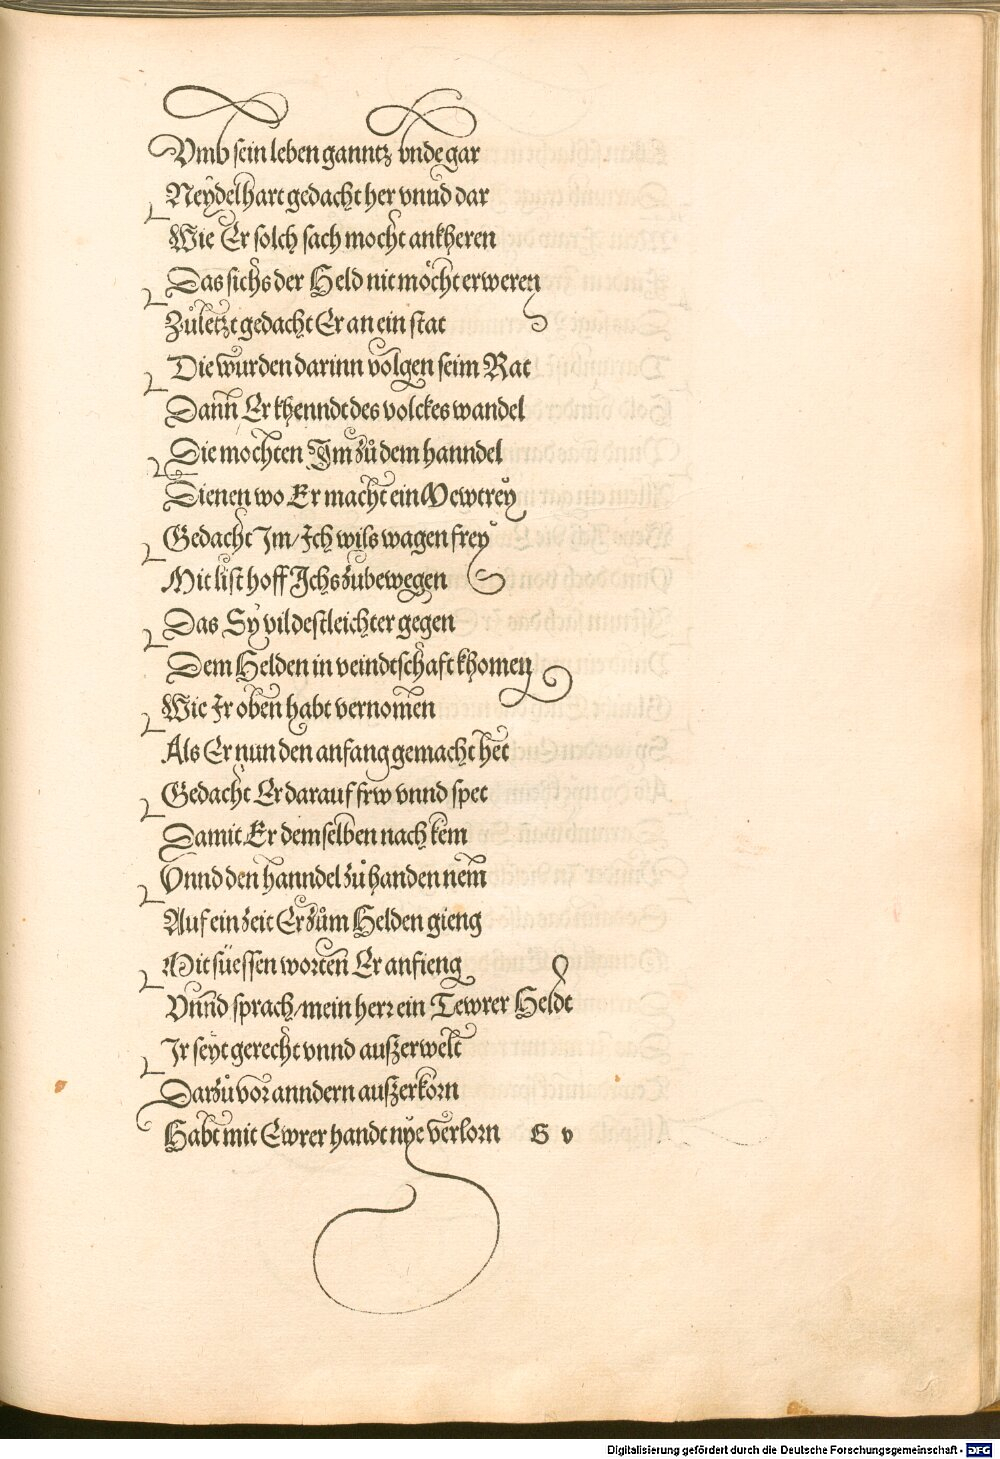 Vmb sein leben ganntz vnde gar
Neÿdelhart gedacht her vnnd dar
Wie Er solch sach mocht ankheren
Das sichs der Held nit möcht erweren
Zůletzt gedacht Er an ein stat
Die wurden darinn volgen seim Rat
Dann Er khenndt des volckes wandel
Die mochten Im zů dem hanndel
Dienen wo Er macht ein Mewtreÿ
Gedacht Im/ Ich wils wagen freÿ
Mit list hoff Ichs zubewegen
Das Sÿ vil dest leichter gegen
Dem Helden in veindtschafft khomen
Wie Ir oben habt vernomen
Als Er nun den anfang gemacht het
Gedacht Er darauf frw vnnd spet
Damit Er demselben nach kem
Vnnd den hanndel zů handen nem
Auf ein zeit Er zům Helden gieng
Mit süessen worten Er anfieng
Vnnd sprach/ mein herr ein Tewrer Heldt
Ir seÿt gerecht vnnd auszerwelt
Darzů vor anndern auszerkorn
Habt mit Ewrer handt nÿe verlorn G v
Digitalisierung gefördert durch die Deutsche Forschungsgemeinschaft - DFG